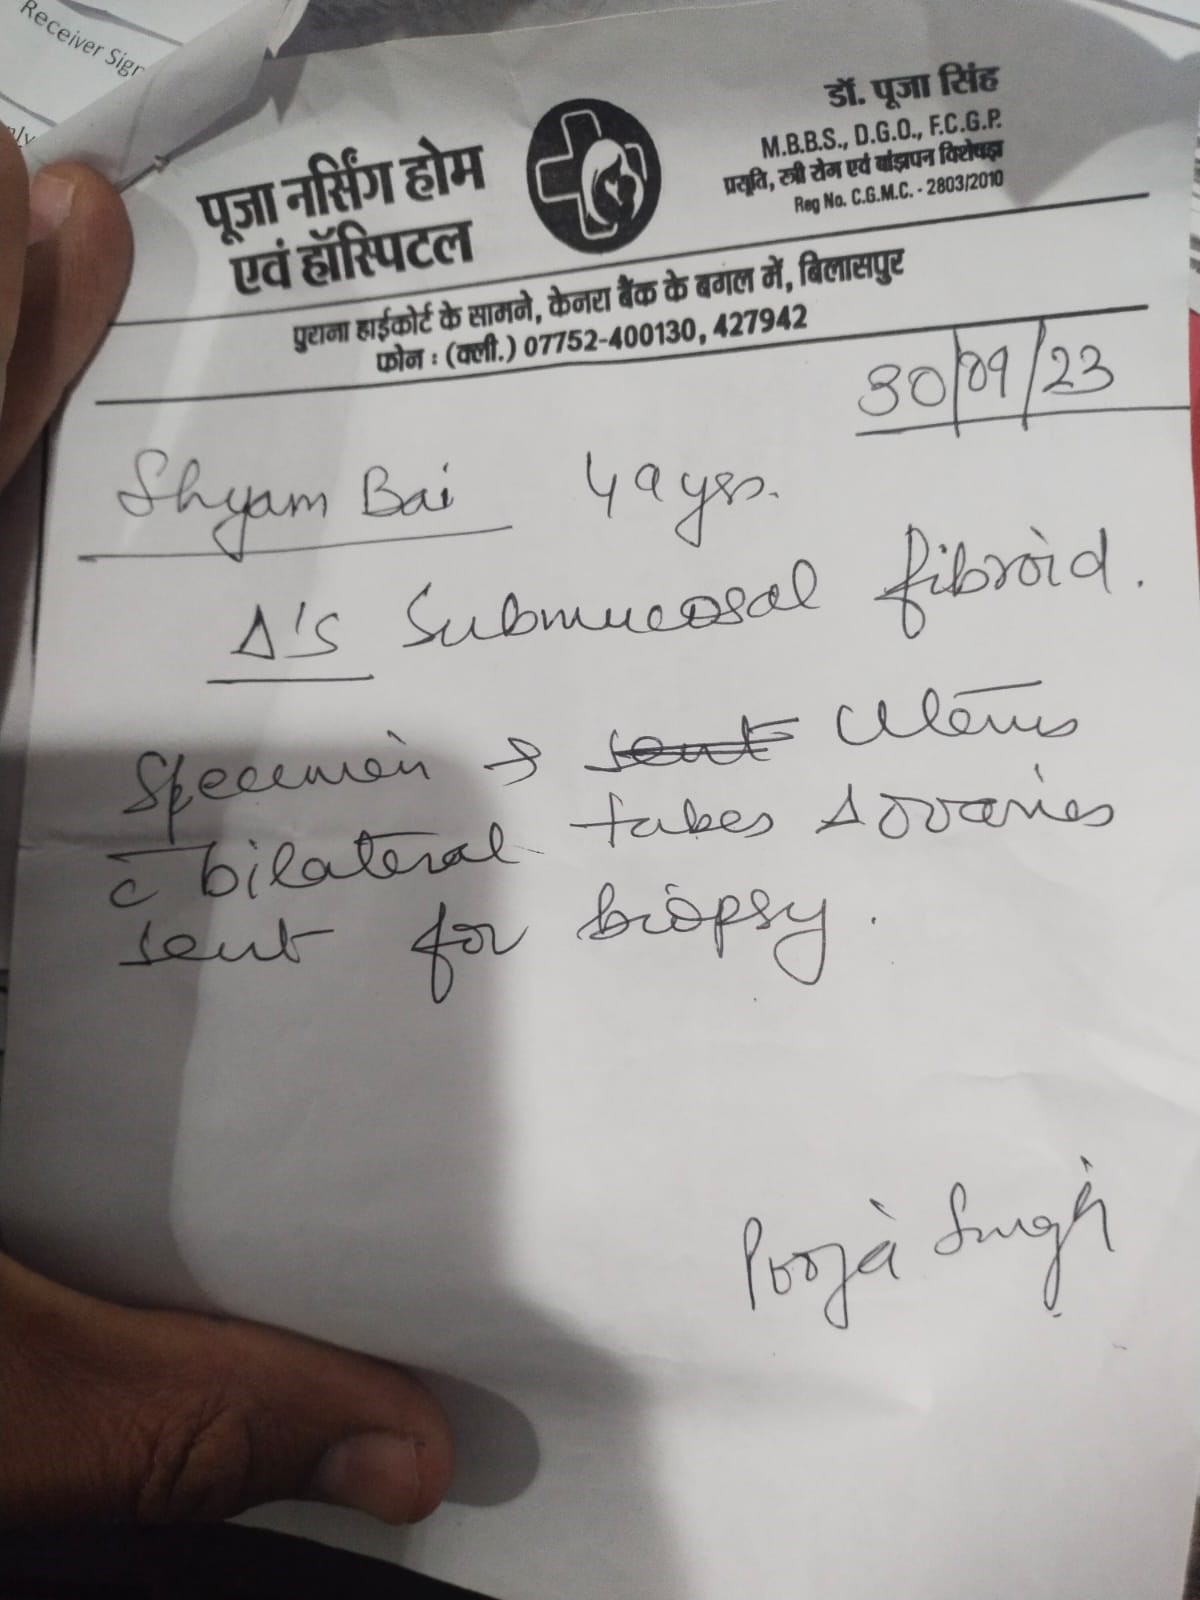 Receiver Sign
nly
पूजा नर्सिंग होम
एवं हॉस्पिटल
डॉ. पूजा सिंह
M.B.B.S., D.G.O., F.C.G.P.
प्रसूति, स्त्री रोग एवं बांझपन विशेषज्ञ
Reg No. C.G.M.C. - 2803/2010
पुराना हाईकोर्ट के सामने, केनरा बैंक के बगल में, बिलासपुर
फोन : (क्ली.) 07752-400130, 427942
30/09/23
Shyam Bai 49 yrs.
Δ'S Submucosal fibroid.
Specimen → sent Uterus
c̄ bilateral tubes & ovaries
sent for biopsy.
Pooja Singh